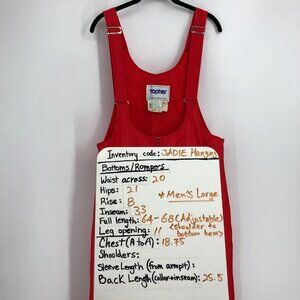 Topher
Inventory code: JADIE Hanging
Bottoms/Rompers
Waist across: 20
Hips: 21
* Men's Large
Rise: 8
Inseam: 33
Full length: 64-68 (Adjustable)
Leg opening: 11 (shoulder to bottom hem)
Chest (A to A): 18.75
Shoulders:
Sleeve Length (from armpit):
Back Length (collar→inseam): 25.5